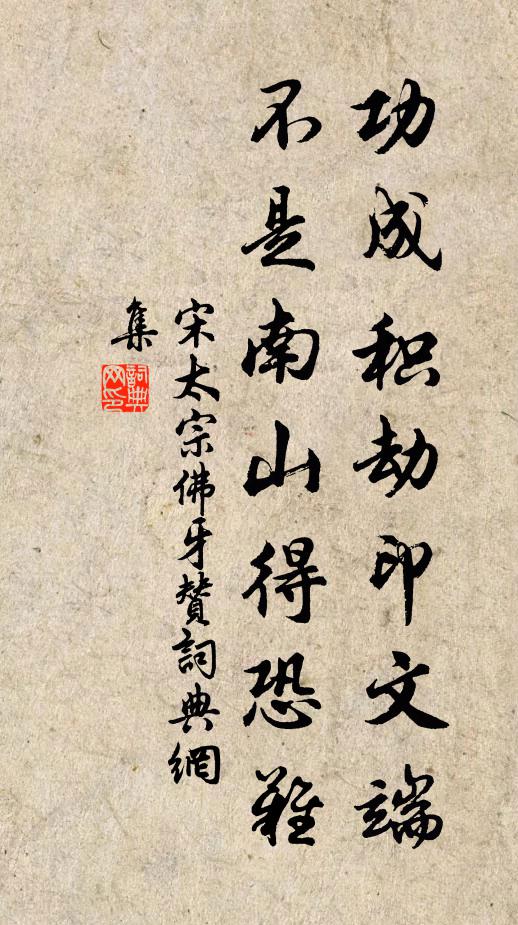 功成积劫印文端
不是南山得恐难
宋太宗佛牙赞詞典網
集
詞典
网印